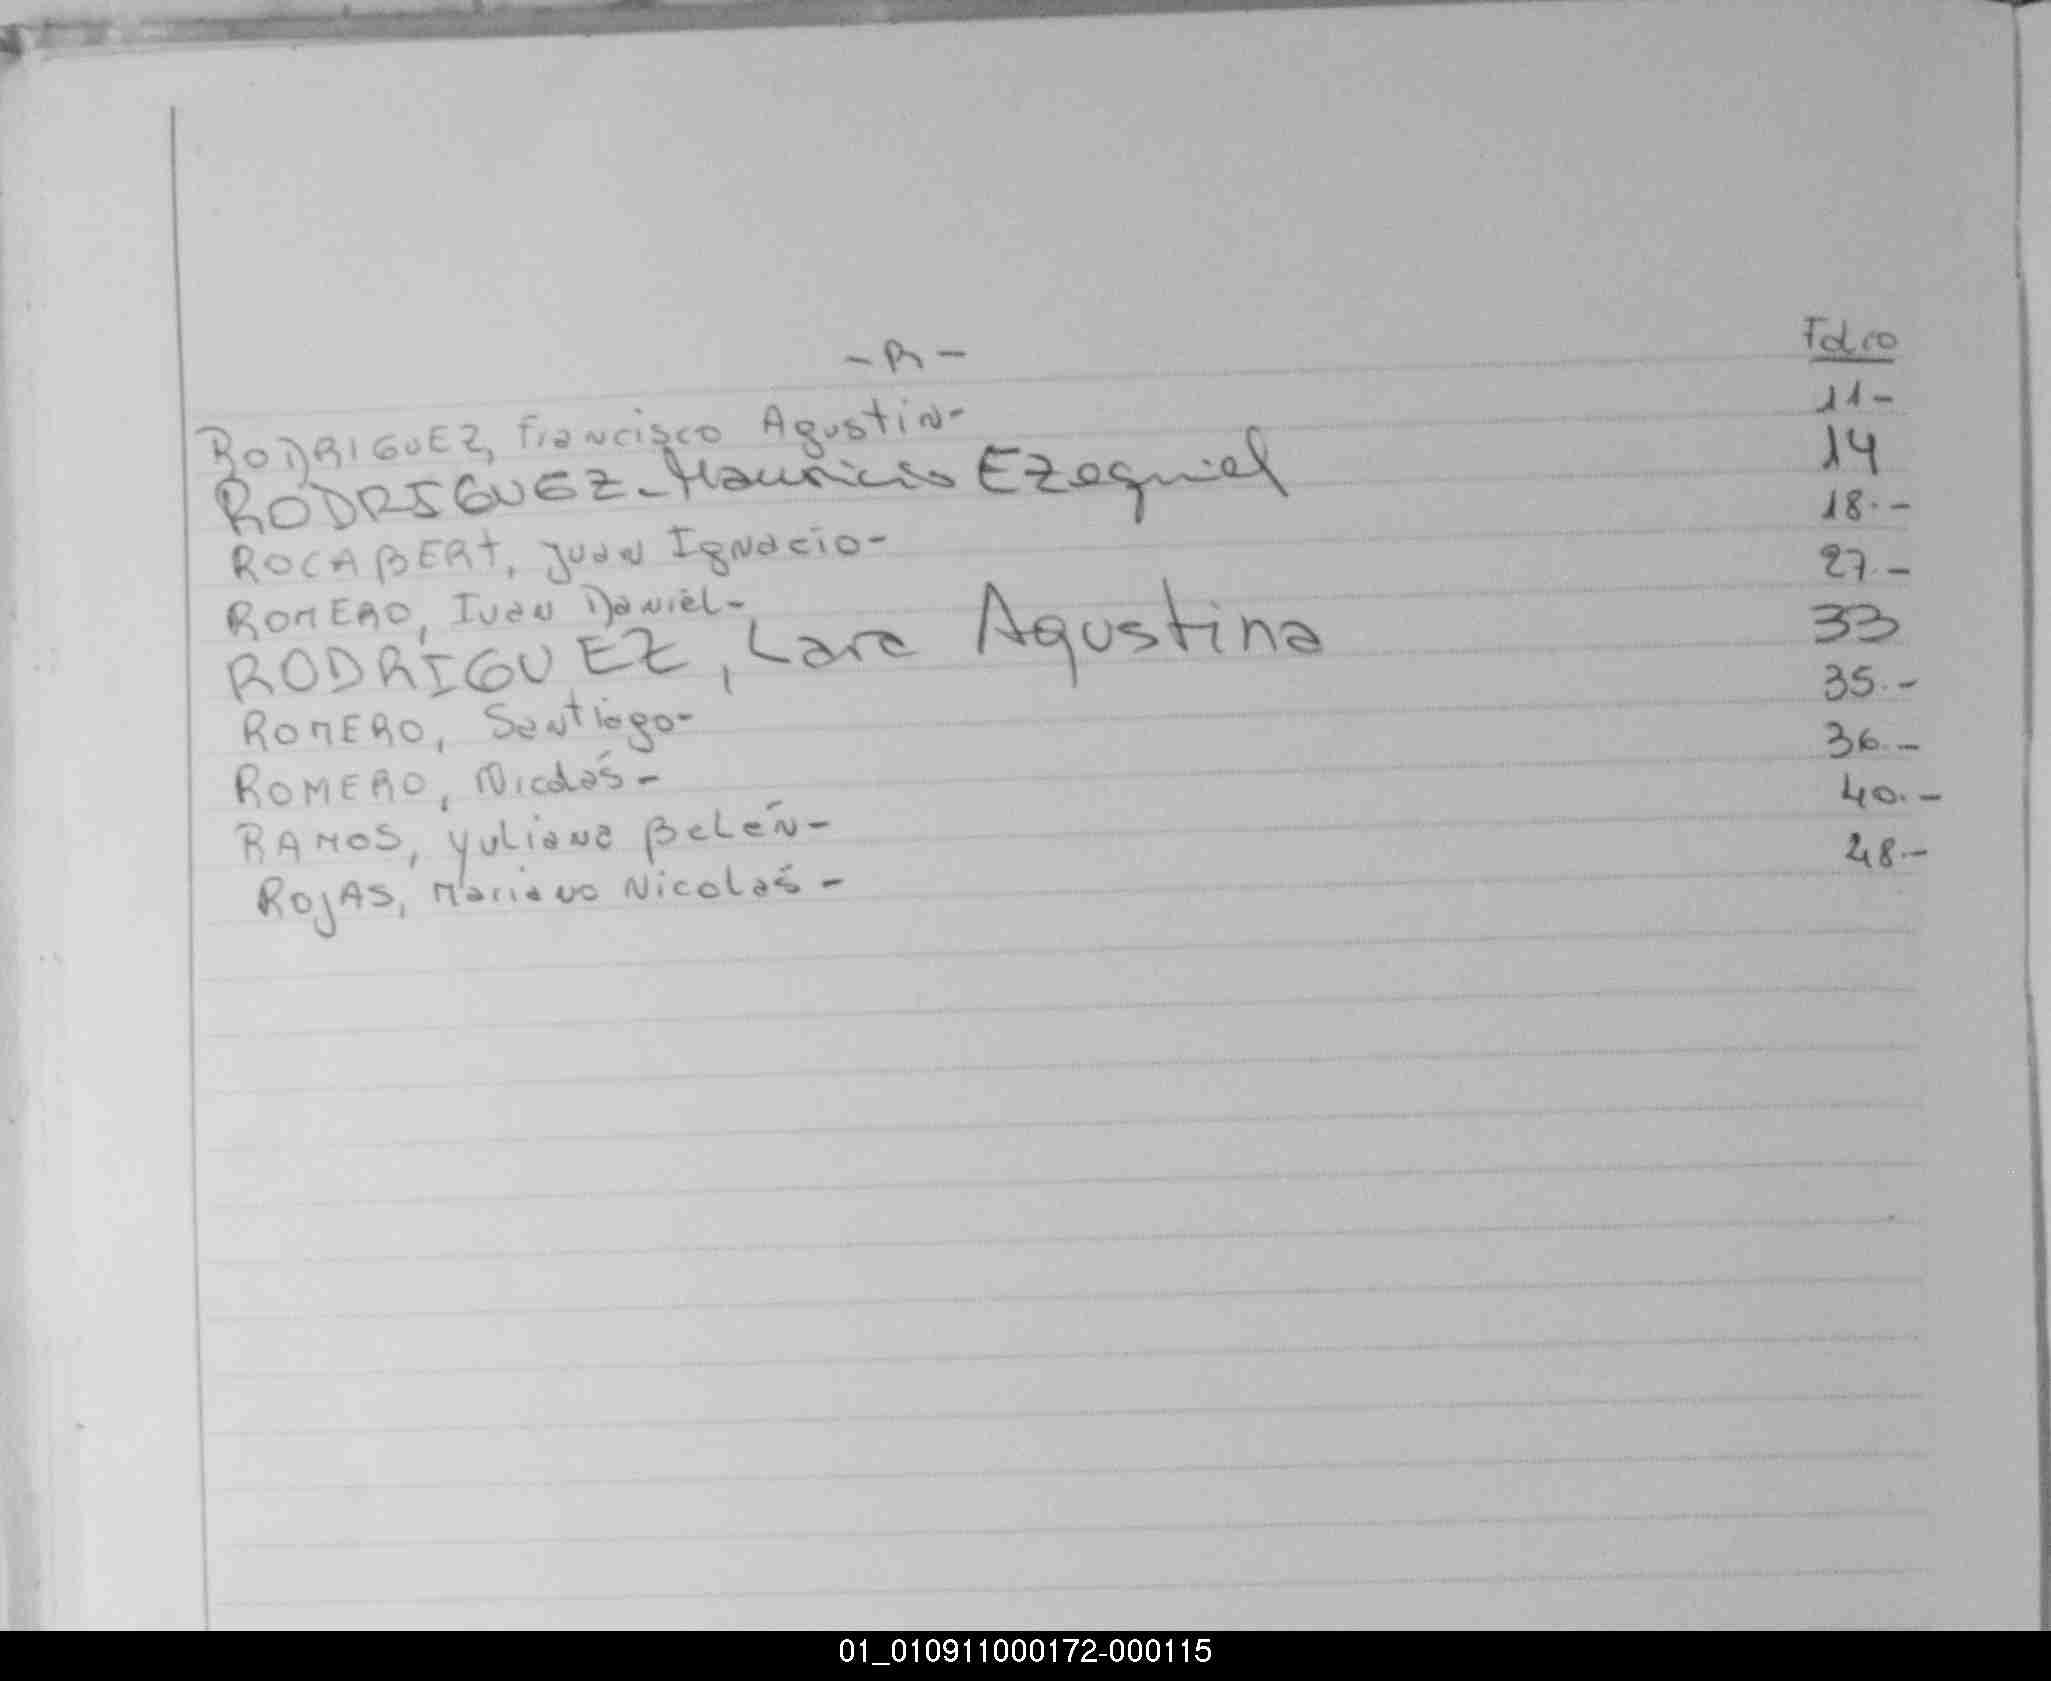 - R - Folio
RODRIGUEZ, Francisco Agustin- 11-
RODRIGUEZ- Mauricio Ezequiel 14
ROCABERT, Juan Ignacio- 18.-
ROMERO, Ivan Daniel- 27.-
RODRIGUEZ, Lara Agustina 33
ROMERO, Santiago- 35.-
ROMERO, Nicolás- 36.-
RAMOS, Yuliana Belén- 40.-
ROJAS, Mariano Nicolás- 48.-
01_010911000172-000115